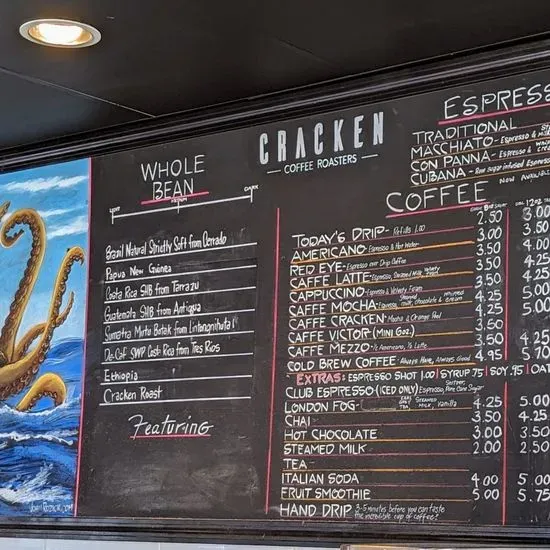 CRACKEN
COFFEE ROASTERS
WHOLE
BEAN
LIGHT MEDIUM DARK
Brazil Natural Strictly Soft from Cerrado
Papua New Guinea
Costa Rica SHB from Tarrazu
Guatemala SHB from Antigua
Sumatra Mirtu Batak from Lintongnihuta
De-Caf SWP Costa Rica from Tres Rios
Ethiopia
Cracken Roast
Featuring
ESPRESS
TRADITIONAL
MACCHIATO - Espresso &
CON PANNA - Espresso &
CUBANA - Raw Sugar infused Espresso
NOW AVAILABLE
COFFEE
12oz
TODAY'S DRIP - Refills 1.00 2.50 3.00
AMERICANO - Espresso & Hot Water
RED EYE - Espresso over Drip Coffee
CAFFE LATTE - Espresso, Steamed Milk, Velvety
CAPPUCCINO - Espresso & Velvety Foam
CAFFE MOCHA - Espresso, Steamed Milk, Chocolate & whipped cream
CAFFE CRACKEN - Mocha & Orange Peel
CAFFE VICTOR (MINI 6oz.)
CAFFE MEZZO - ½ Americano, ½ Latte
COLD BREW COFFEE - Always Here, Always Good 4.95 5.70
EXTRAS: ESPRESSO SHOT 1.00 | SYRUP .75 | SOY .95 | OAT
CLUB ESPRESSO (ICED ONLY) Espresso, Seltzer, Pure Cane Sugar
LONDON FOG - EARL GREY TEA STEAMED MILK Vanilla 4.25 5.00
CHAI 4.25
HOT CHOCOLATE 3.00 3.50
STEAMED MILK 2.00 2.50
TEA
ITALIAN SODA 4.00 5.00
FRUIT SMOOTHIE 5.00 5.75
HAND DRIP 3-5 minutes before you can taste the incredible cup of coffee!